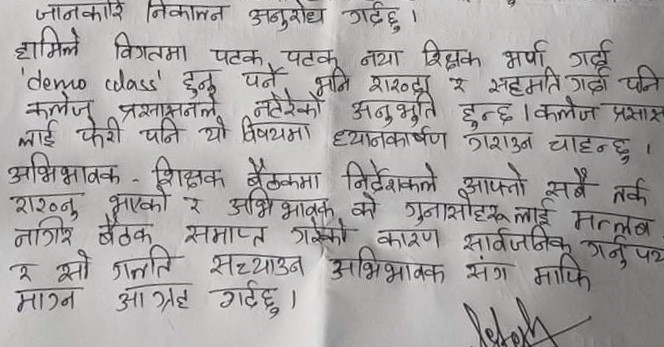 जानकारि निकाल्न अनुरोध गर्दछु।
हामिले विगतमा पटक पटक नया शिक्षक भर्ना गर्दा
'demo class' हुनु पर्ने भनि राख्दा र सहमति गर्दा पनि
कलेज प्रसासनले नटेरेको अनुभुति हुन्छ। कलेज प्रसास
लाई फेरी पनि यो विषयमा ध्यानकार्षण गराउन चाहन्छु।
अभिभावक - शिक्षक बैठकमा निर्देशकले आफ्नो सबै तर्क
राख्नु भएको र अभिभावक को गुनासोहरू लाई मतलब
नगरि बैठक समाप्त गरेको कारण सार्वजनिक गर्नु पर्
र सो गल्ति सच्याउन अभिभावक संग माफि
माग्न आग्रह गर्दछु।